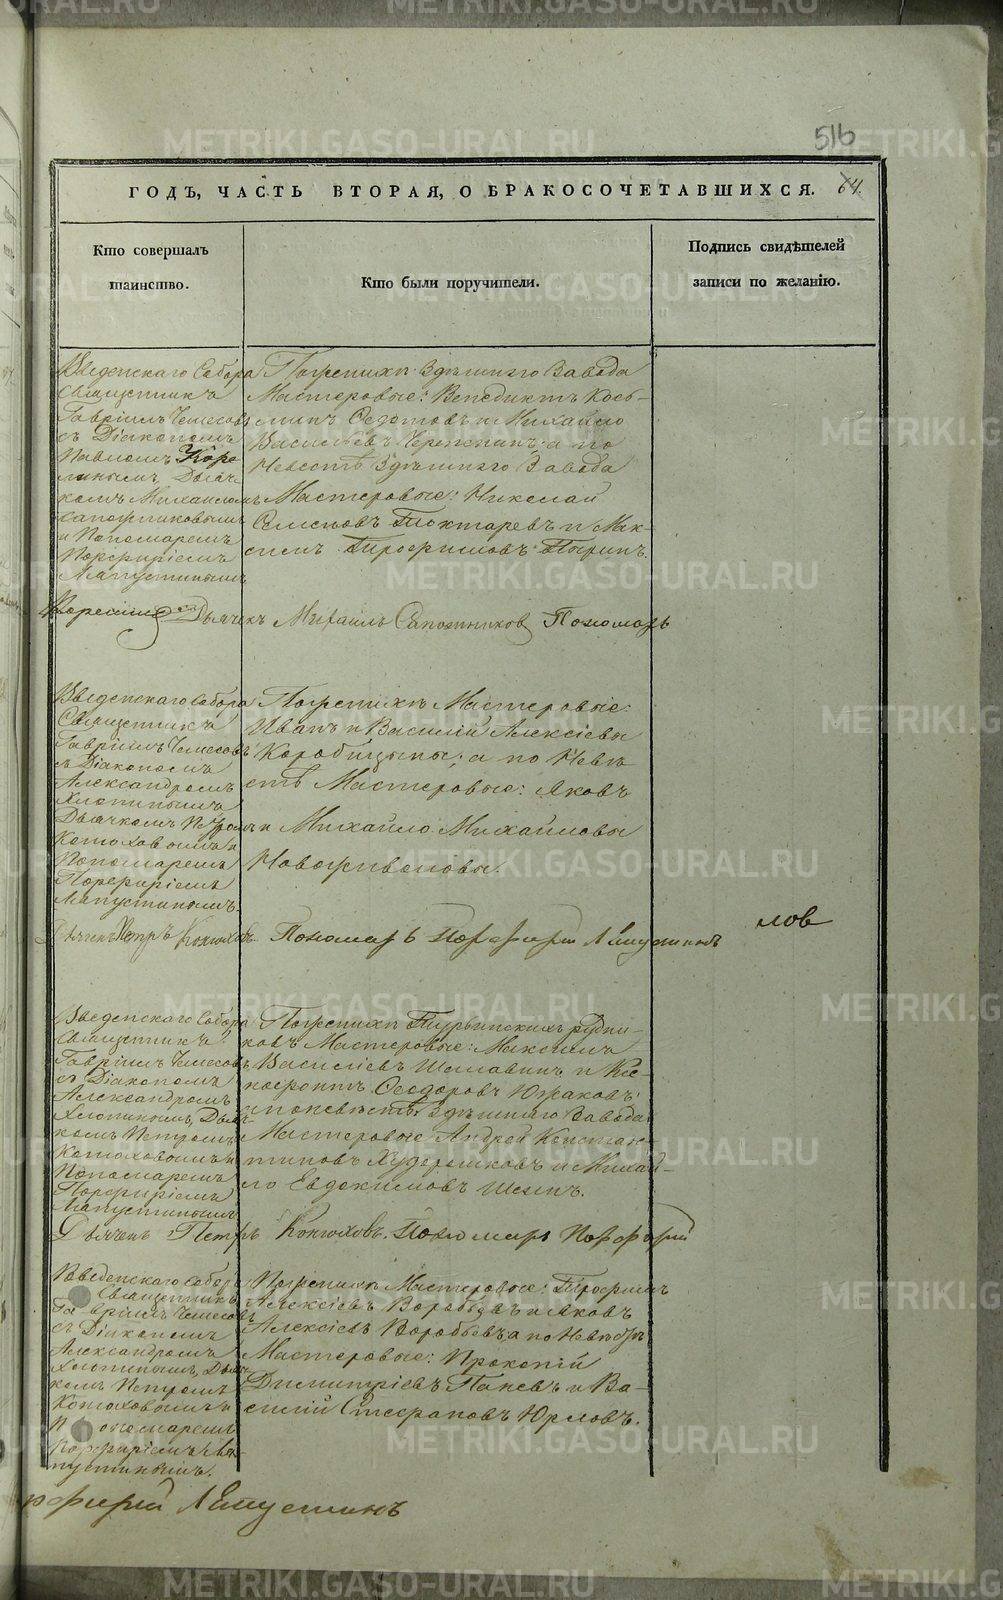 516
ГОДЪ, ЧАСТЬ ВТОРАЯ, О БРАКОСОЧЕТАВШИХСЯ. 64.
Кто совершалъ
таинство.
Кто были поручители.
Подпись свидѣтелей
записи по желанію.
Введенскаго Собора
Священникъ
Гавріилъ Чемесовъ
съ Діакономъ
Павломъ
Дьяч-
комъ Михаиломъ
Сапожниковымъ
и Пономаремъ
Порфиріемъ
Лапустинымъ
По женихѣ Здѣшняго Завода
Мастеровые: Венедиктъ Козь-
минъ Федотовъ и Михайло
Васильевъ а по
Невестѣ Здѣшняго Завода
Мастеровые: Николай
Семеновъ Токтаревъ и Мак-
симъ Трофимовъ
Дьячекъ Михаилъ Сапожников Пономарь
Введенскаго Собора
Священникъ
Гавріилъ Чемесовъ
съ Діакономъ
Александромъ
Хлопинымъ
Дьячкомъ Петромъ
Конюховымъ и
Пономаремъ
Порфиріемъ
Лапустинымъ.
По женихѣ Мастеровые:
Иванъ и Василій Алексіевы
Коробицыны; а по Невѣ-
стѣ Мастеровые: Яковъ
и Михайло Михайловы
Дьячекъ Петръ Конюховъ. Пономарь Порфирій Лапустинъ
лов
Введенскаго Собора
Священникъ
Гавріилъ Чемесовъ
съ Діакономъ
Александромъ
Хлопинымъ, Дьяч-
комъ Петромъ
Конюховымъ и
Пономаремъ
Порфиріемъ
Лапустинымъ
По женихѣ Турьинскихъ рудни-
ковъ Мастеровые: Максимъ
Василіевъ и Ксе-
нофонтъ Феодоровъ
а по невѣстѣ Здѣшняго Завода
Мастеровые Андрей Констан-
тиновъ и Михай-
ло Евдокимовъ
Дьячекъ Петръ Конюховъ. Пономарь Порфирій
Введенскаго Собора
Священникъ
Гавріилъ Чемесовъ
съ Діакономъ
Александромъ
Хлопинымъ, Дьяч-
комъ Петромъ
Конюховымъ и
Пономаремъ
Порфиріемъ Ла-
пустинымъ.
По женихѣ Мастеровые: Трофимъ
Алексіевъ Воробьевъ и Яковъ
Алексіевъ Воробьевъ, а по Невѣстѣ
Мастеровые: Прокопій
Димитріевъ Паневъ и Ва-
силій Стефановъ Юрловъ.
рфирій Лапустинъ
METRIKI.GASO-URAL.RU